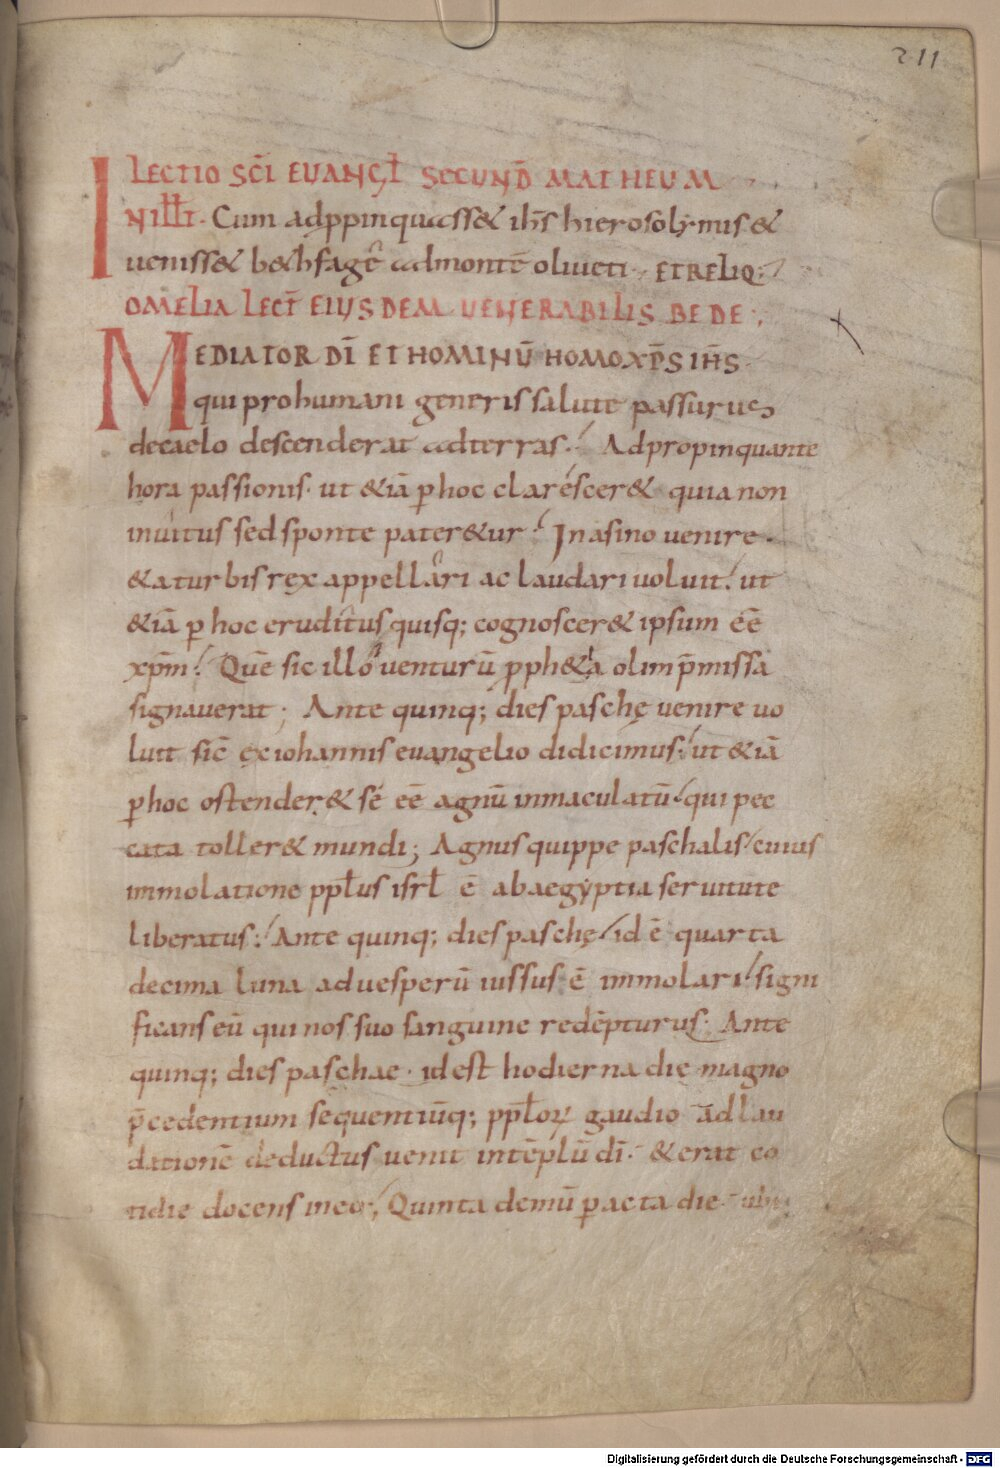 211
LECTIO SC̄I EUANGL̄ SECUND̄ MATHEUM
IN ILL̄T. Cum adppinquass& ih̄s hierosolymis &
ueniss& b&hfagē ad montē oliueti, ET RELIQ:
OMELIA LECT̄ EIUSDEM UENERABILIS BEDE;
MEDIATOR DĪ ET HOMINŪ HOMO XP̄S IH̄S
qui pro humani generis salute passurus
de caelo descenderat ad terras. Adpropinquante
hora passionis. ut &iā p̲ hoc clarescer& quia non
inuitus sed sponte pater&ur. In asino uenire.
& a turbis rex appellari ac laudari uoluit. ut
&iā p̲ hoc eruditus quisq; cognoscer& ipsum eē
xp̄m. Quē sic illo uenturū p̲ph&ia olim p̄missa
signauerat; Ante quinq; dies paschę uenire uo
luit sic̄ ex iohannis euangelio didicimus. ut &iā
p̲ hoc ostender& sē eē agnū inmaculatū. qui pec
cata toller& mundi; Agnus quippe paschalis cuius
immolatione ppl̄us isrl̄ ē ab aegyptia seruitute
liberatus. Ante quinq; dies paschę id ē quarta
decima luna ad uesperū iussus ē immolari. signi
ficans eū qui nos suo sanguine redēpturus. Ante
quinq; dies paschae. id est hodierna die magno
p̄cedentium sequentiūq; ppl̄oꝝ gaudio ad lau
dationē deductus uenit in tēplū dī. & erat co
tidie docens in eo; Quinta demū p̲acta die
Digitalisierung gefördert durch die Deutsche Forschungsgemeinschaft - DFG